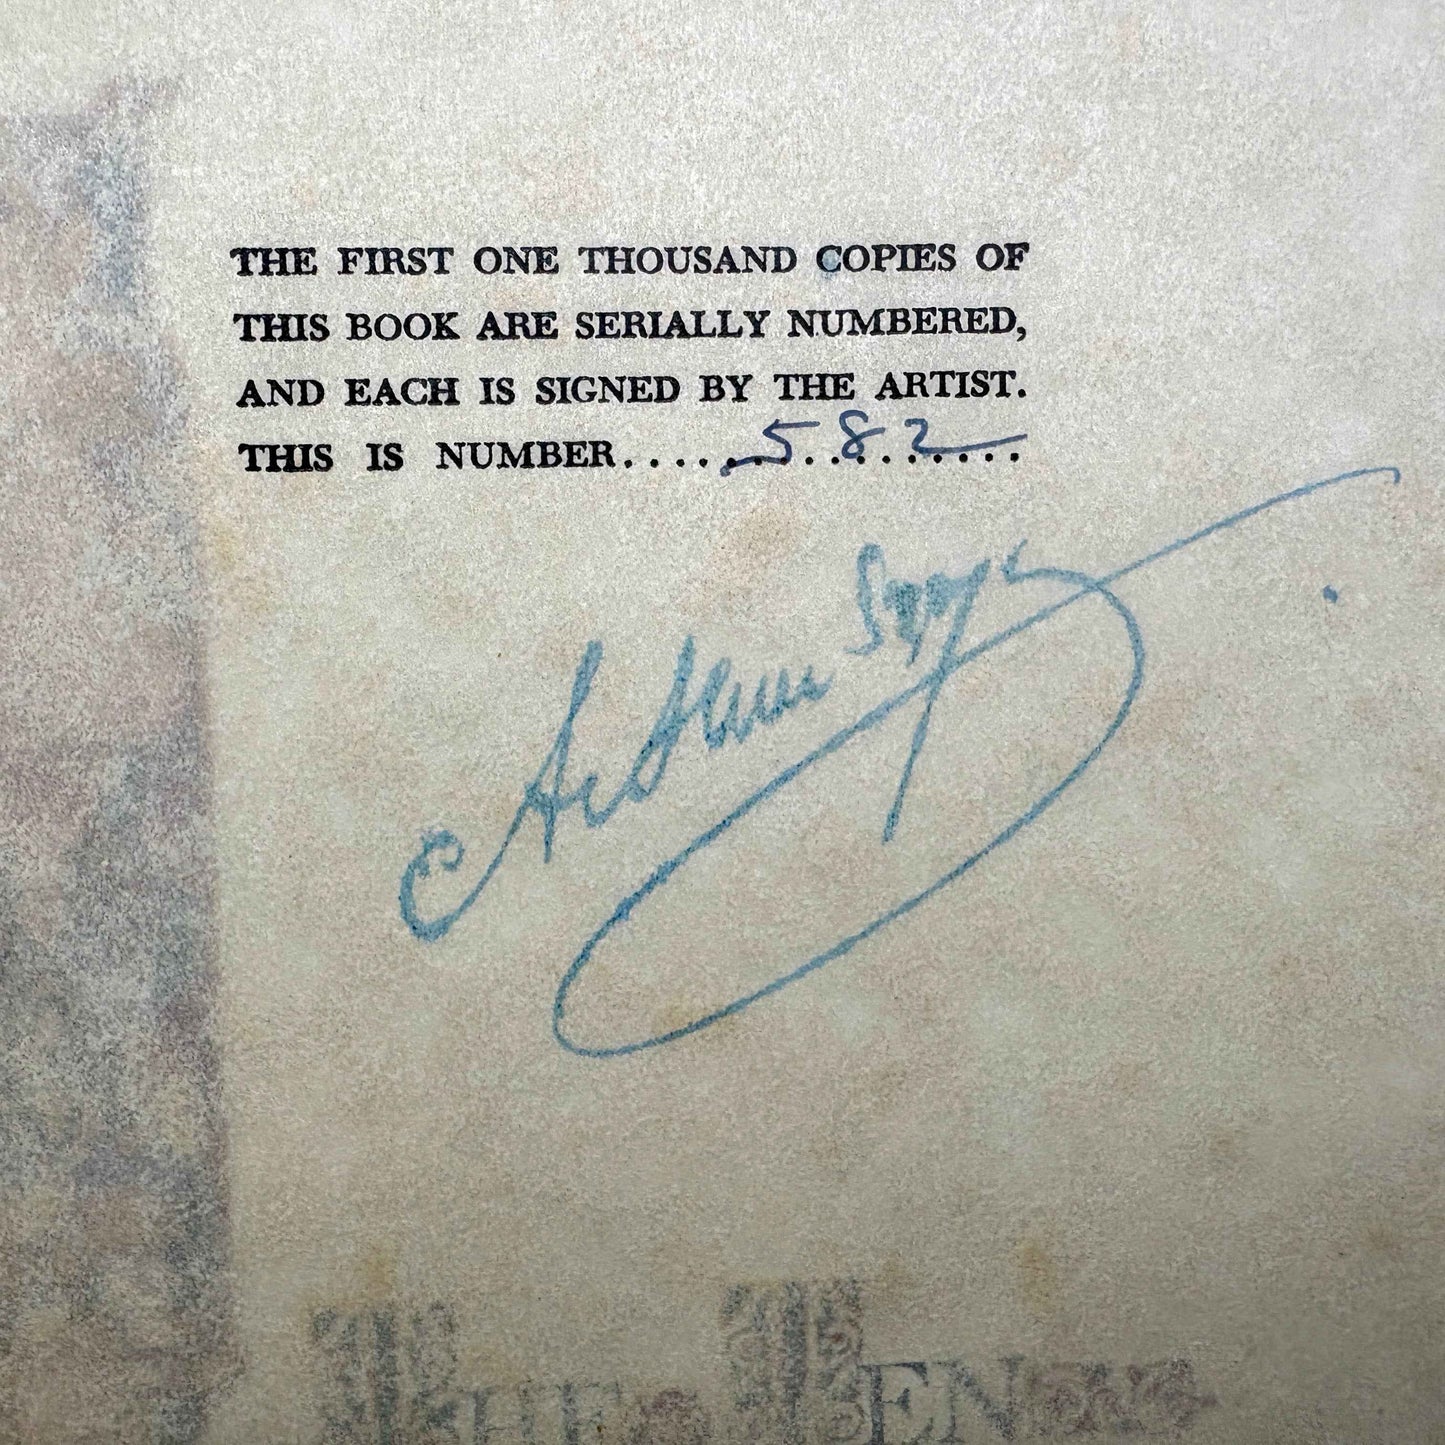 THE FIRST ONE THOUSAND COPIES OF
THIS BOOK ARE SERIALLY NUMBERED,
AND EACH IS SIGNED BY THE ARTIST.
THIS IS NUMBER.....582.....
THE